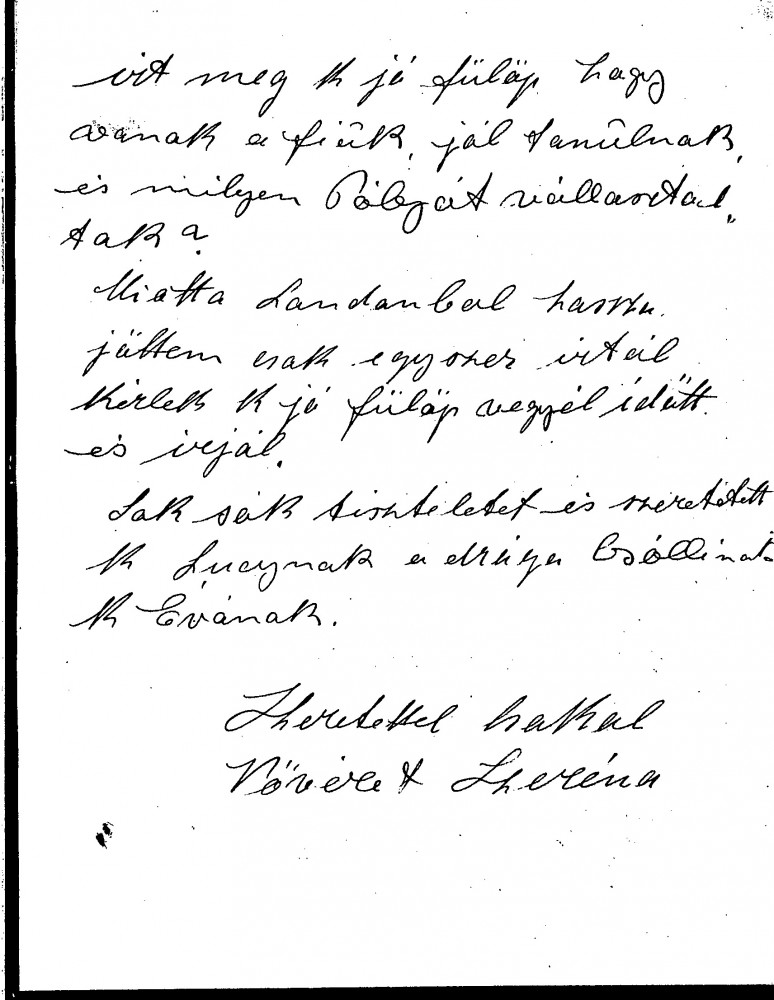 irt meg K jó fülöp hogy
vanak a fiûk, jól tanûlnak,
és milyen Pályát vállasztal„
tak?
Miatta Landanbol hasztu.
jöttem csak egyszer irtál
Kérlek K jó fülöp vegyél idött.
és irjál.
Sok sok tiszteletet és szeretetett
K Lucynak a drága
K Évának.
Szeretettel csokal
Növéret Szheréna